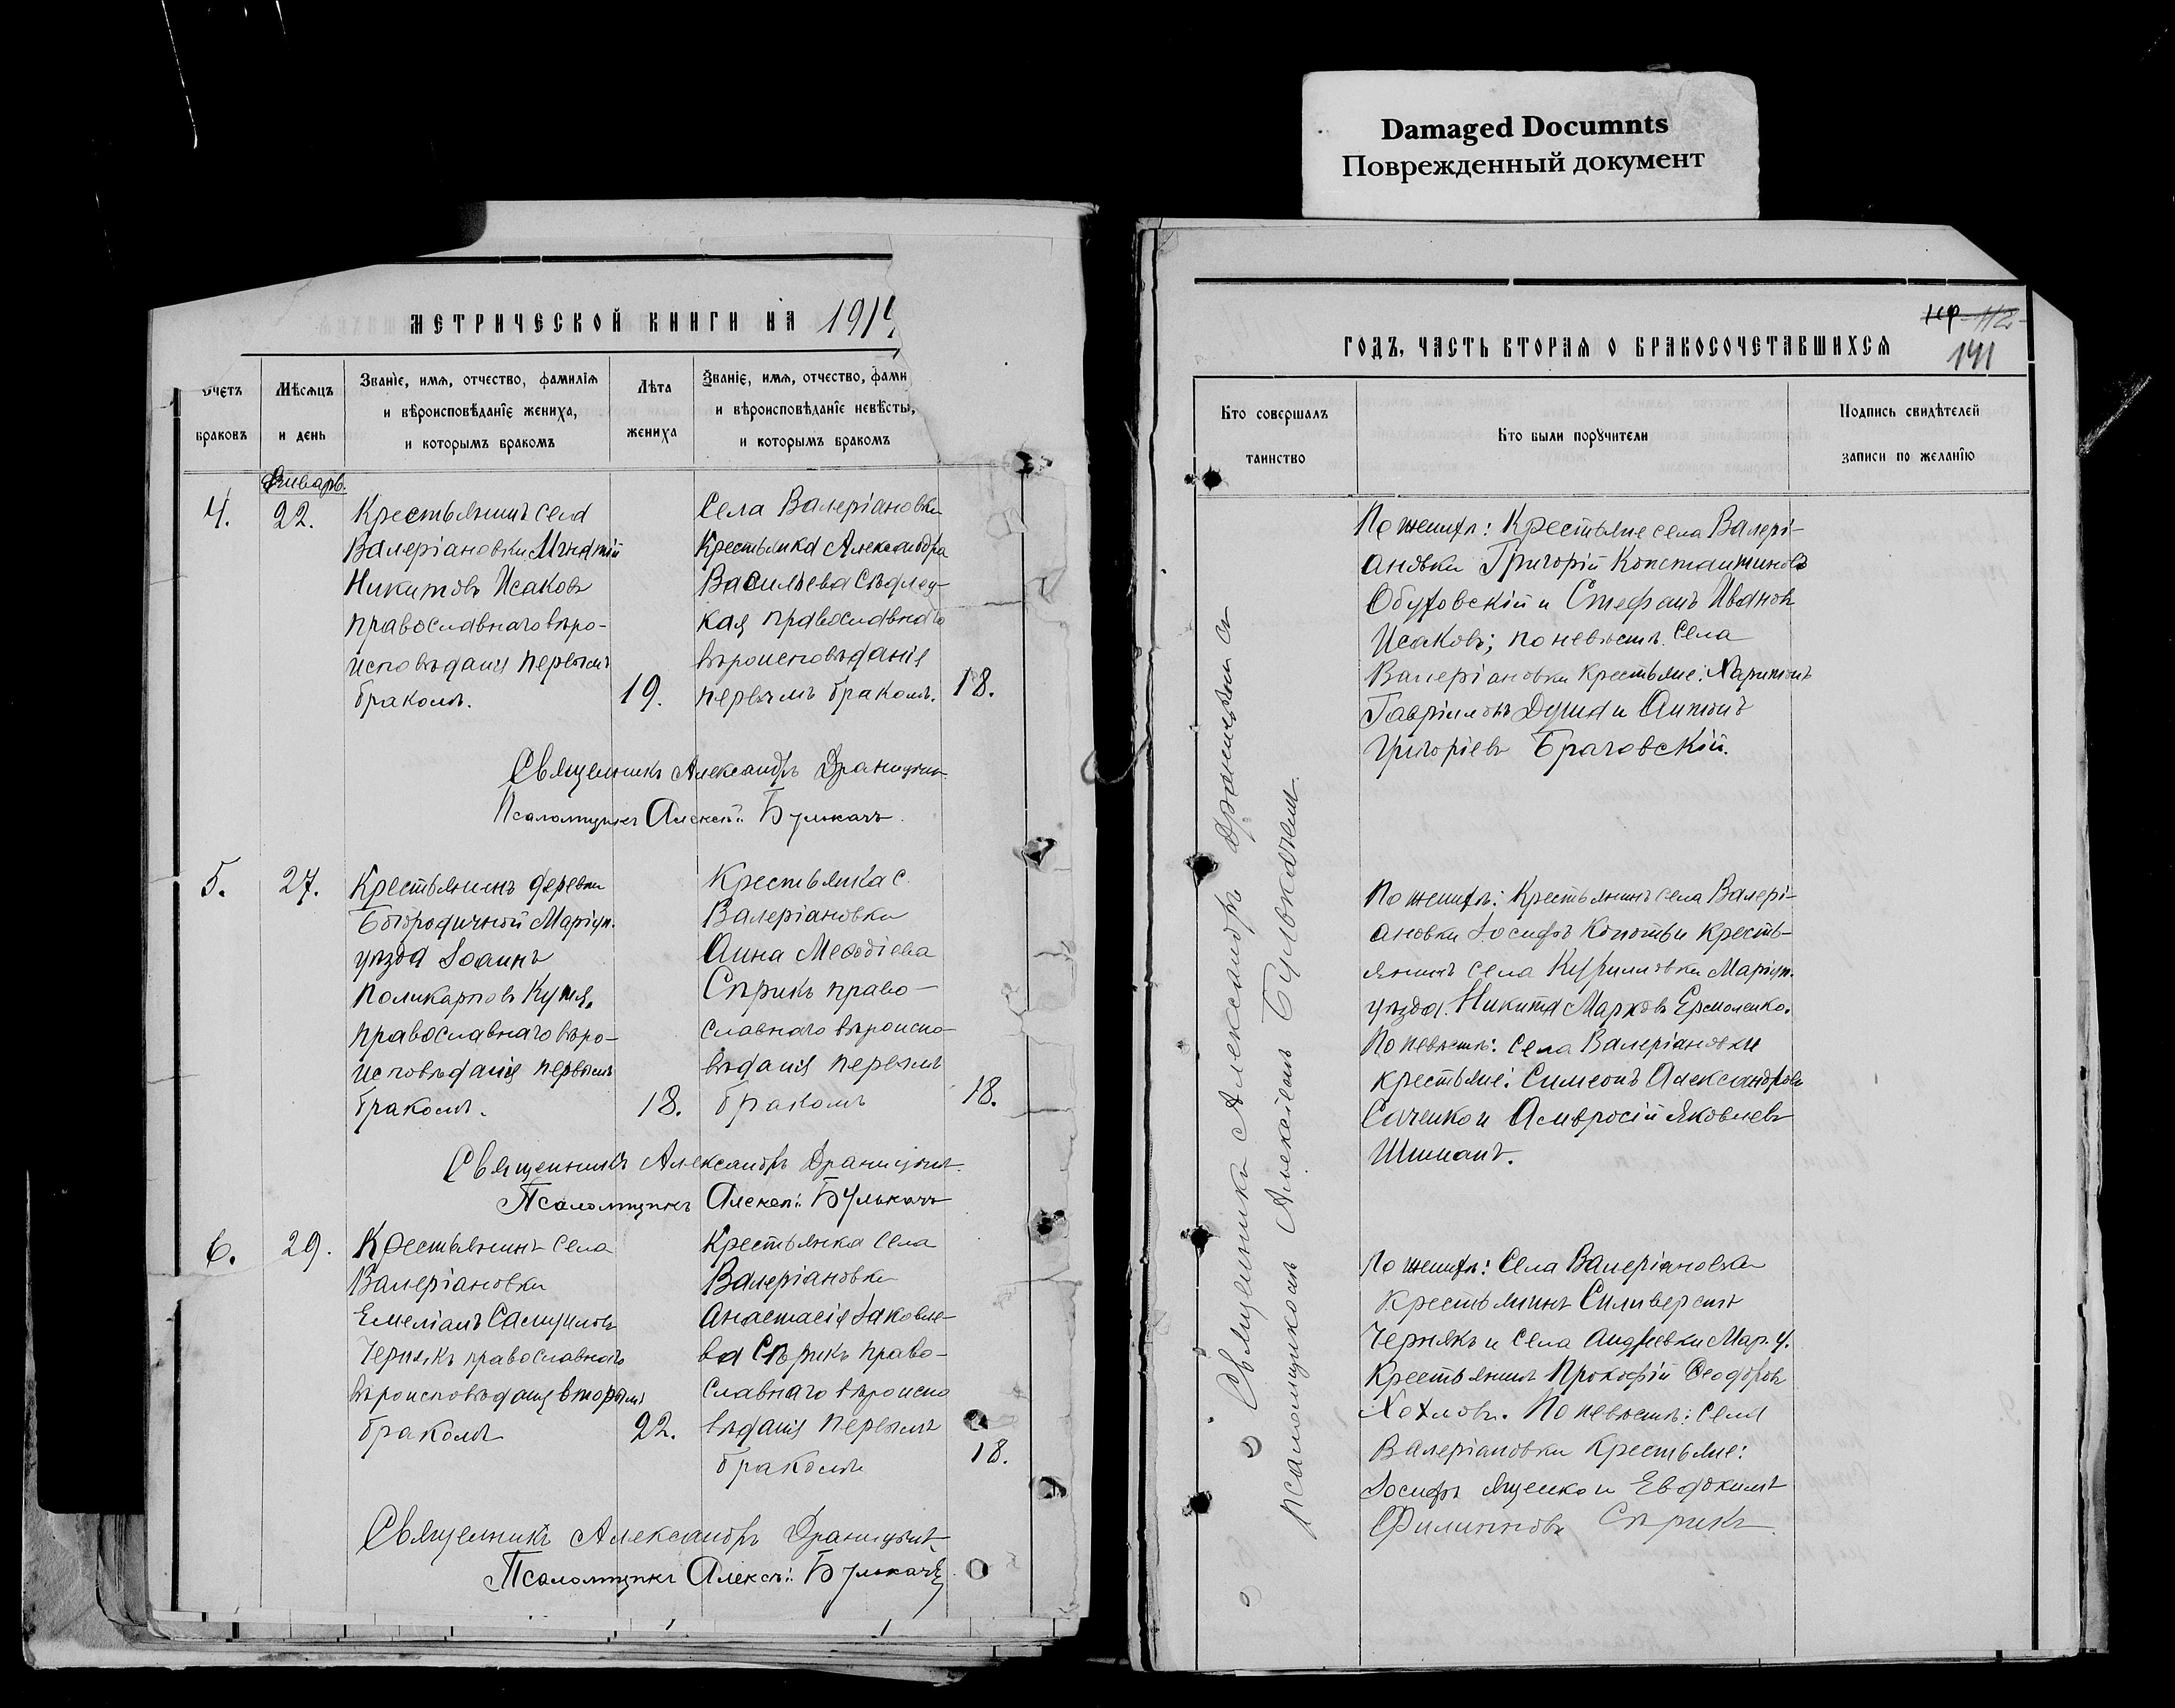 Damaged Documnts
Поврежденный документ
МЕТРИЧЕСКОЙ КНИГИ НА 191
Счетъ браковъ
Мѣсяцъ и день
Званіе, имя, отчество, фамилія
и вѣроисповѣданіе жениха,
и которымъ бракомъ
Лѣта
жениха
Званіе, имя, отчество, фами
и вѣроисповѣданіе невѣсты,
и которымъ бракомъ
Январь.
4.
22.
Крестьянинъ села
Валеріановки Игнатій
Никитовъ Исаковъ
православнаго вѣро-
исповѣданія первымъ
бракомъ.
19.
Села Валеріановки
Крестьянка Александра
Васильева
кая православнаго
вѣроисповѣданія
первымъ бракомъ.
18.
Священникъ Александръ Драницынъ
Псаломщикъ Алексѣй Булькачъ
5.
27.
Крестьянинъ деревни
Богородичной Маріуп.
уѣзда Іоаннъ
Поликарповъ
православнаго вѣро-
исповѣданія первымъ
бракомъ.
18.
Крестьянка с.
Валеріановки
Анна Меѳодіева
Сприкъ право-
славнаго вѣроиспо-
вѣданія первымъ
бракомъ
18.
Священникъ Александръ Драницынъ
Псаломщикъ Алексѣй Булькачъ
6.
29.
Крестьянинъ села
Валеріановки
Емеліанъ Самуиловъ
Чернякъ православнаго
вѣроисповѣданія вторымъ
бракомъ
22.
Крестьянка села
Валеріановки
Анастасія Іаковле-
ва Сприкъ право-
славнаго вѣроиспо
вѣданія первымъ
бракомъ
18.
Священникъ Александръ Драницынъ
Псаломщикъ Алексѣй Булькачъ
112
141
ГОДЪ, ЧАСТЬ ВТОРАЯ О БРАКОСОЧЕТАВШИХСЯ
Кто совершалъ
таинство
Кто были поручители
Подпись свидѣтелей
записи по желанію
Священникъ Александръ Драницынъ съ
псаломщикомъ Алексѣемъ Булькачемъ.
По женихѣ: Крестьяне села Валері-
ановки Григорій Константиновъ
Обуховскій и Стефанъ Ивановъ
Исаковъ; по невѣстѣ села
Валеріановки крестьяне: Харитонъ
Гавріиловъ Душа и Антонъ
Григоріевъ Браговскій.
По женихѣ: Крестьянинъ села Валері-
ановки Іосифъ и кресть-
янинъ села Кирилловки Маріуп.
уѣзда Никита Марковъ Ермоленко.
По невѣстѣ: села Валеріановки
крестьяне: Симеонъ Александровъ
Саченко и Амвросій Яковлевъ
Шиманъ.
По женихѣ: Села Валеріановки
крестьянинъ Силиверстъ
Чернякъ и села Андреевки Мар. у.
Крестьянинъ Прокофій Ѳеодоровъ
Хохловъ. По невѣстѣ: села
Валеріановки крестьяне:
Іосифъ Ященко и Евдокимъ
Филипповъ Сприкъ.